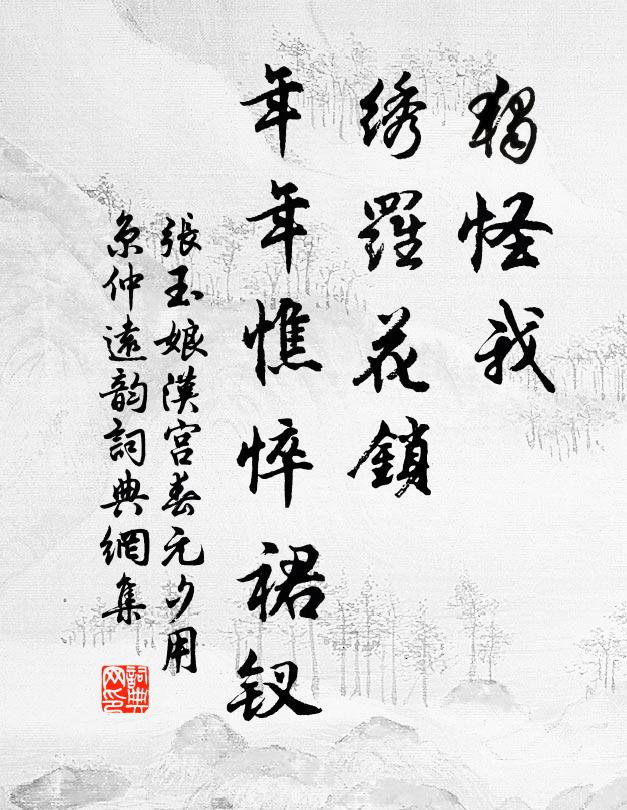 獨怪我
綉羅花鎖
年年憔悴裙釵
張玉娘漢宮春元夕用
京仲遠韵詞典網集
詞典网印